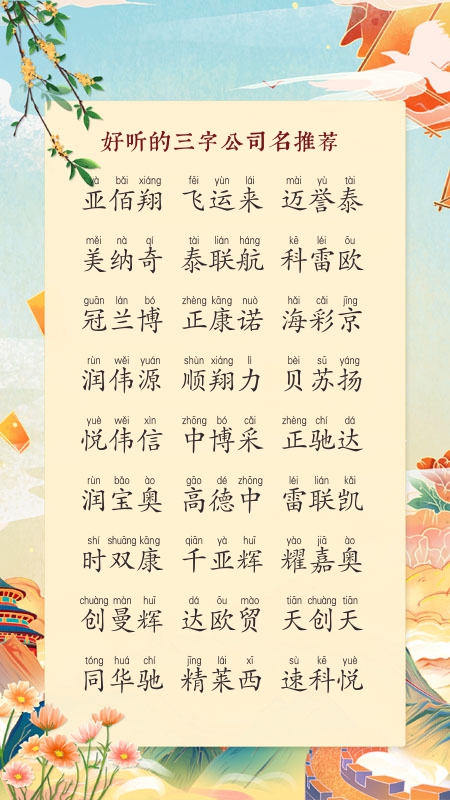 好听的三字公司名推荐
yà bǎi xiáng fēi yùn lái mài yù tài
亚佰翔 飞运来 迈誉泰
měi nà qí tài lián háng kē léi ōu
美纳奇 泰联航 科雷欧
guān lán bó zhèng kāng nuò hǎi cǎi jīng
冠兰博 正康诺 海彩京
rùn wěi yuán shùn xiáng lì bèi sū yáng
润伟源 顺翔力 贝苏扬
yuè wěi xìn zhōng bó cǎi zhèng chí dá
悦伟信 中博采 正驰达
rùn bǎo ào gāo dé zhōng léi lián kǎi
润宝奥 高德中 雷联凯
shí shuāng kāng qiān yà huī yào jiā ào
时双康 千亚辉 耀嘉奥
chuàng màn huī dá ōu mào tiān chuàng tiān
创曼辉 达欧贸 天创天
tóng huá chí jīng lái xī sù kē yuè
同华驰 精莱西 速科悦